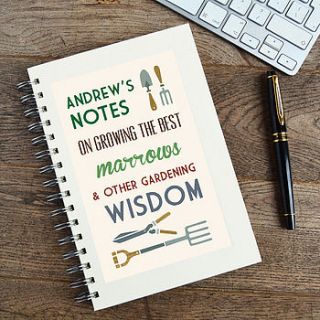 ANDREW'S
NOTES
ON GROWING THE BEST
marrows
& OTHER GARDENING
WISDOM